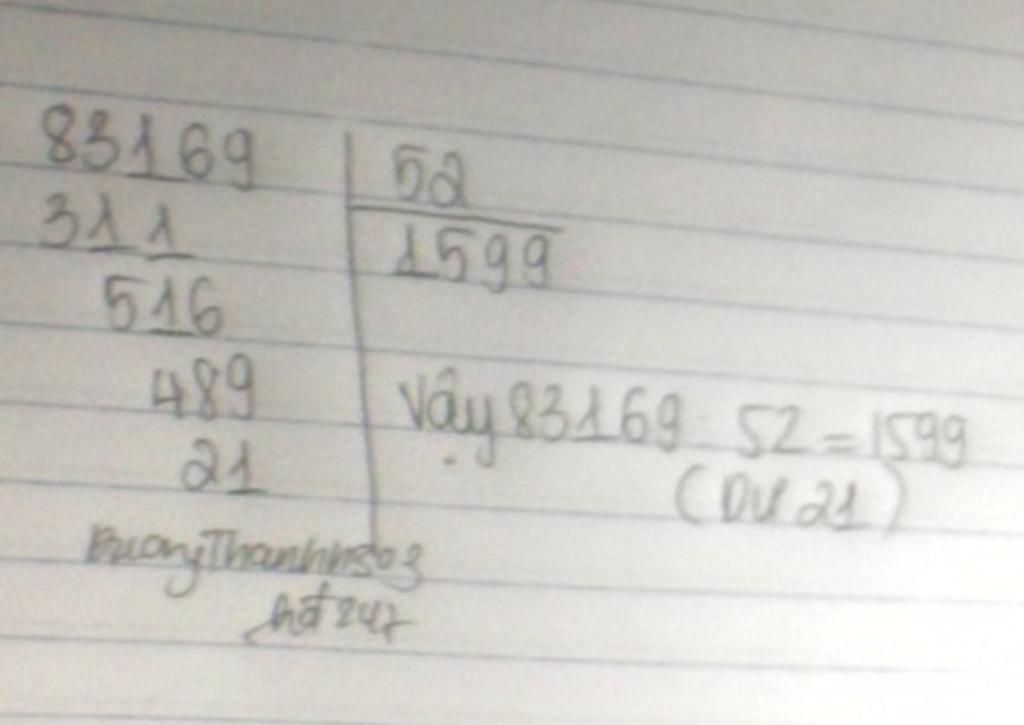 83169 52
311 1599
516
489 Vậy 83169 : 52 = 1599
21 (Dư 21)
hđ 247